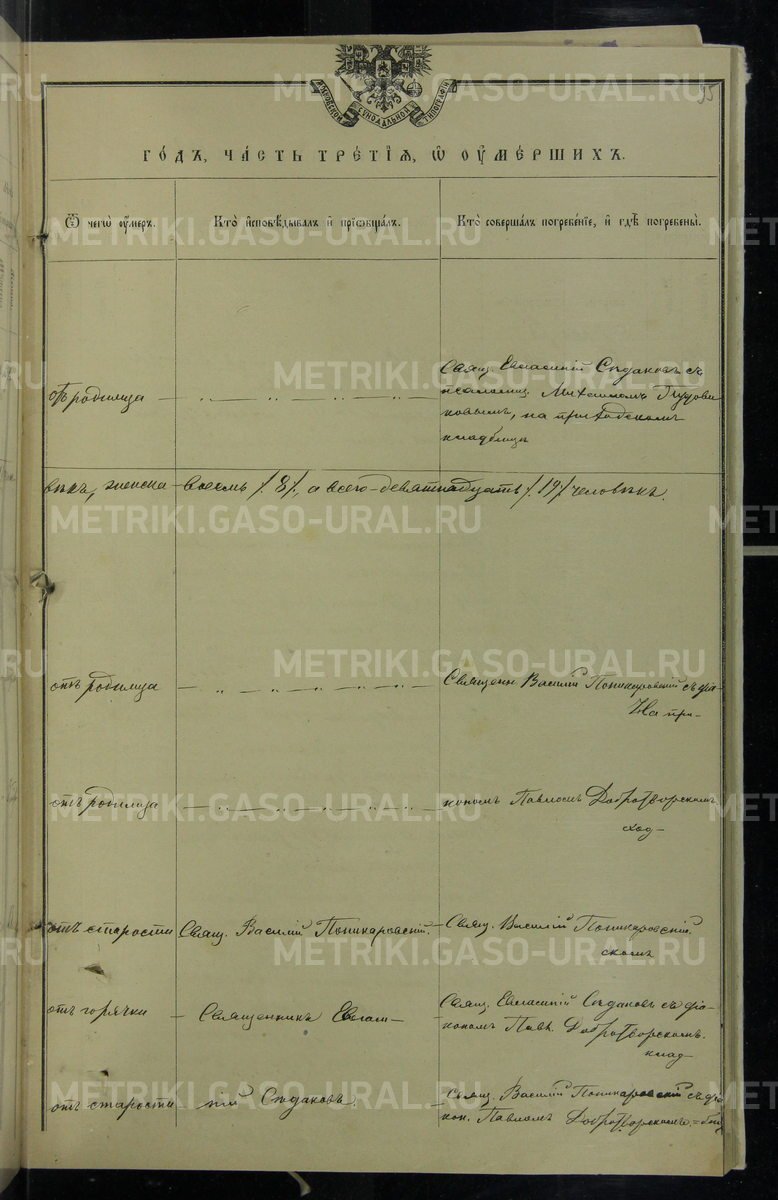 95
МОСКОВСКОЙ СУНОДАЛЬНОЙ ТИПОГРАФІИ
ГОДЪ, ЧАСТЬ ТРЕТІѦ, Ѿ ОУМЕРШИХЪ.
Ѿ чегѡ оумеръ.
Кто исповѣдывалъ и пріобщалъ.
Кто совершалъ погребеніе, и гдѣ погребены.
отъ родимца
Свящ. Евгеній Сѣдаковъ съ
псаломщ. Михаиломъ
на приходскомъ
кладбищѣ
вѣкъ, женска – восемь /8/, а всего – девятнадцать /19/ человѣкъ.
отъ родимца
Священн Василій Поникаровскій съ діа-
На при-
отъ родимца
кономъ Павломъ Добротворскимъ
ход-
отъ старости
Свящ. Василій Поникаровскій.
Свящ. Василій Поникаровскій
скомъ
отъ горячки
Священникъ
Свящ. Сѣдаковъ съ діа-
кономъ Павл. Добротворскимъ.
клад-
отъ старости
ній Сѣдаковъ.
Свящ. Василій Поникаровскій съ діа-
кон. Павломъ Добротворскимъ. = бищ
METRIKI.GASO-URAL.RU